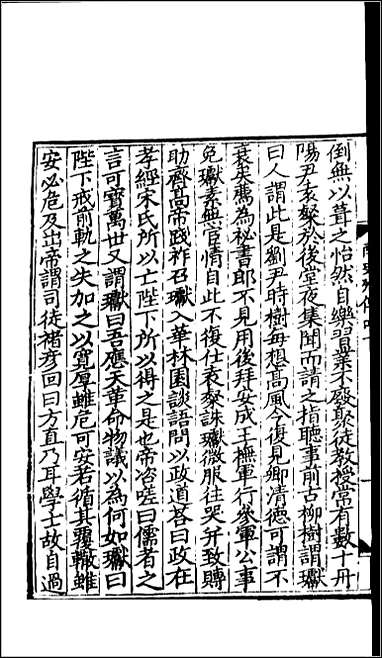 倒無以葺之怡然自樂習業不廢聚徒教授常有數十丹
陽尹袁粲於後堂夜集聞而請之指聽事前古柳樹謂瓛
曰人謂此是劉尹時樹每想高風今復見卿清德可謂不
衰矣薦為秘書郎不見用後拜安成王橅軍行參軍公事
免瓛素無宦情自此不復仕袁粲誅瓛微服往哭并致賻
助齊高帝踐祚召瓛入華林園談語問以政道荅曰政在
孝經宋氏所以亡陛下所以得之是也帝咨嗟曰儒者之
言可寶萬世又謂瓛曰吾應天革命物議以為何如瓛曰
陛下戒前軌之失加之以寬厚雖危可安若循其覆轍雖
安必危及出帝謂司徒褚彥回曰方直乃耳學士故自過